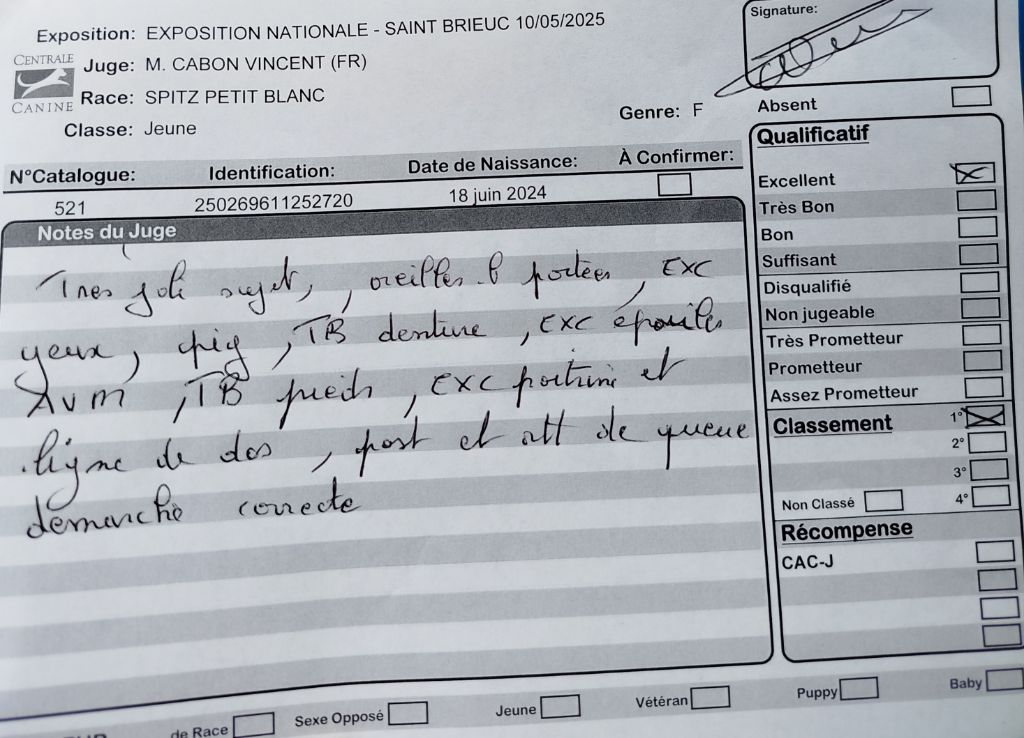 Exposition: EXPOSITION NATIONALE - SAINT BRIEUC 10/05/2025
CENTRALE CANINE
Juge: M. CABON VINCENT (FR)
Race: SPITZ PETIT BLANC
Classe: Jeune
Genre: F
Signature:
Absent
N°Catalogue: Identification: Date de Naissance: À Confirmer:
521 250269611252720 18 juin 2024
Notes du Juge
Tres joli sujet, , oreilles b portées, EXC
yeux, pig, TB denture, EXC épaules
AVM, TB pieds, EXC poitrine et
ligne de dos, port et att de queue
demarche correcte
Qualificatif
Excellent
Très Bon
Bon
Suffisant
Disqualifié
Non jugeable
Très Prometteur
Prometteur
Assez Prometteur
Classement 1°
2°
3°
Non Classé 4°
Récompense
CAC-J
de Race Sexe Opposé Jeune Vétéran Puppy Baby